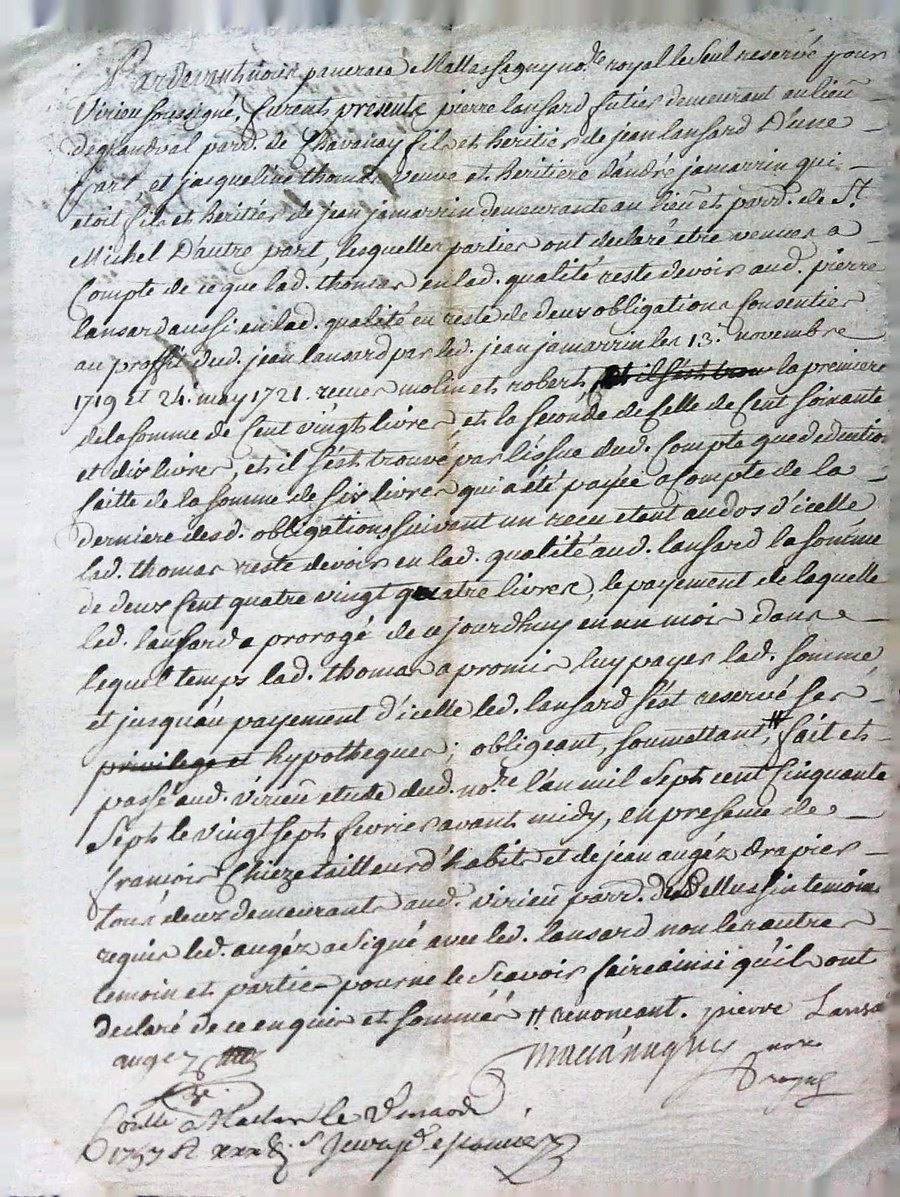 Pardevant nous pancrace Mattassagny no.re royal le Seul reservé pour
Virieu soussigné, furent presents pierre lansard futier demeurant au lieu
de grandval parr. de Chavanay fils et heritier de jean lansard D'une
part et jacqueline thomas veuve et heritiere d'andré jamarrin qui
etoit fils et heritier de jean jamarrin demeurante au lieu et parr. de S.t
Michel D'autre part, lesquelles parties ont declaré etre venues a
Compte de ce que lad. thomas en lad. qualité reste devoir aud. pierre
lansard aussi en lad. qualité en reste de deux obligations Consenties
au proffit dud. jean lansard par led. jean jamarrin les 13.e novembre
1719 et 24. may 1721 recues molin et robert, et il s'est trouv la premiere
de la somme de Cent vingt livres et la seconde de Celle de Cent soixante
et dix livres, et il s'est trouvé par l'issue dud. Compte que deduction
faitte de la somme de six livres qui a été payée a compte de la
derniere desd. obligations suivant un recu etant au dos d'icelle
lad. thomas reste devoir en lad. qualité aud. lansard la somme
de deux Cent quatre vingt quatre livres, le payement de laquelle
led. lansard a prorogé de ce jourdhuy en un mois dans
lequel temps lad. thomas a promis luy payer lad. somme
et jusqu'au payement d'icelle led. lansard s'est reservé ses
privilege et hypotheques; obligeant, soumettant, # fait et
passé aud. virieu etude dud. no.re l'an mil Sept cent Cinquante
Sept le vingt sept fevrier avant midy, en presence de
françois Chieze tailleur d'habits et de jean augéz drapier
tous deux demeurants aud. virieu parr. de Pellussin temoins
requis led. augéz a signé avec led. lansard non les autres
temoin et partie pour ne le Scavoir faire ainsi qu'ils ont
declaré de ce enquis et sommés # renoncant. pierre Lansa
augez
no.re
royal
Con.lle a Malleval le
1757 R